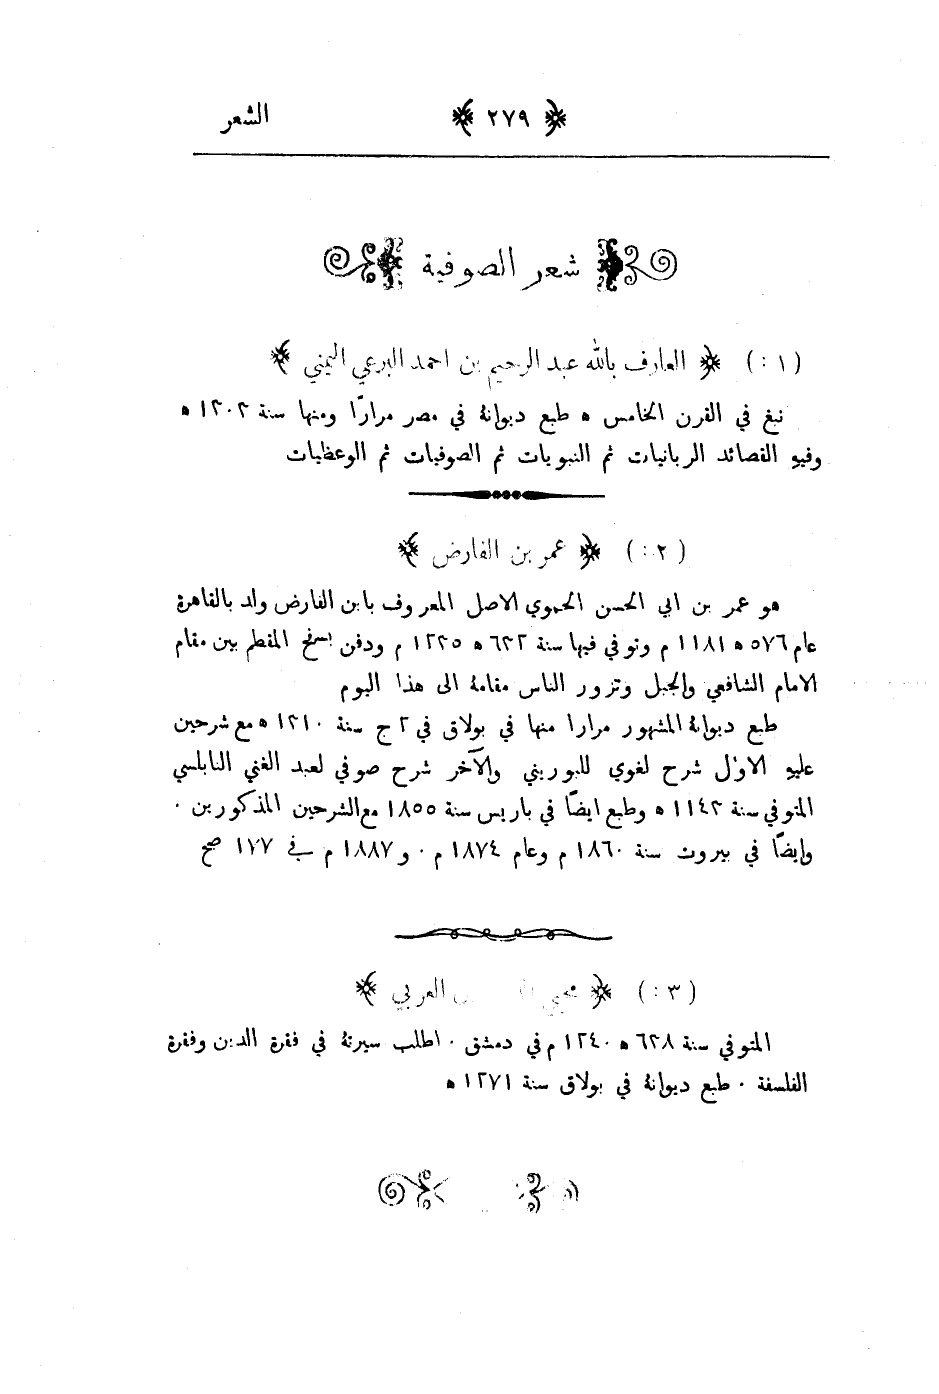 ﴿ ٢٧٩ ﴾ الشعر
شعر الصوفية
(١:) ﴿ العارف بالله عبد الرحيم بن احمد البرعي اليمني ﴾
نبغ في القرن الخامس ﻫ طبع ديوانهُ في مصر مرارًا ومنها سنة ١٣٠٢ ﻫ
وفيهِ القصائد الربانيات ثم النبويات ثم الصوفيات ثم الوعظيات
(٢:) ﴿ عمر بن الفارض ﴾
هو عمر بن ابي الحسن الحموي الاصل المعروف بابن الفارض ولد بالقاهرة
عام ٥٧٦ ﻫ ١١٨١ م وتوفي فيها سنة ٦٣٢ ﻫ ١٢٣٥ م ودفن بسفح المقطم بين مقام
الامام الشافعي والجبل وتزور الناس مقامهُ الى هذا اليوم
طبع ديوانهُ المشهور مرارا منها في بولاق في ٢ ج سنة ١٣١٠ ﻫ مع شرحين
عليهِ الاوَّل شرح لغوي للبوريني والآخر شرح صوفي لعبد الغني النابلسي
المتوفي سنة ١١٤٣ ﻫ وطبع ايضًا في باريس سنة ١٨٥٥ مع الشرحين المذكورين ·
وايضًا في بيروت سنة ١٨٦٠ م وعام ١٨٧٤ م · و ١٨٨٧ م في ١٧٧ صح
(٣:) ﴿ محيي العربي ﴾
المتوفي سنة ٦٣٨ ﻫ ١٢٤٠ م في دمشق · اطلب سيرتهُ في فقرة الدين وفقرة
الفلسفة · طبع ديوانهُ في بولاق سنة ١٢٧١ ﻫ